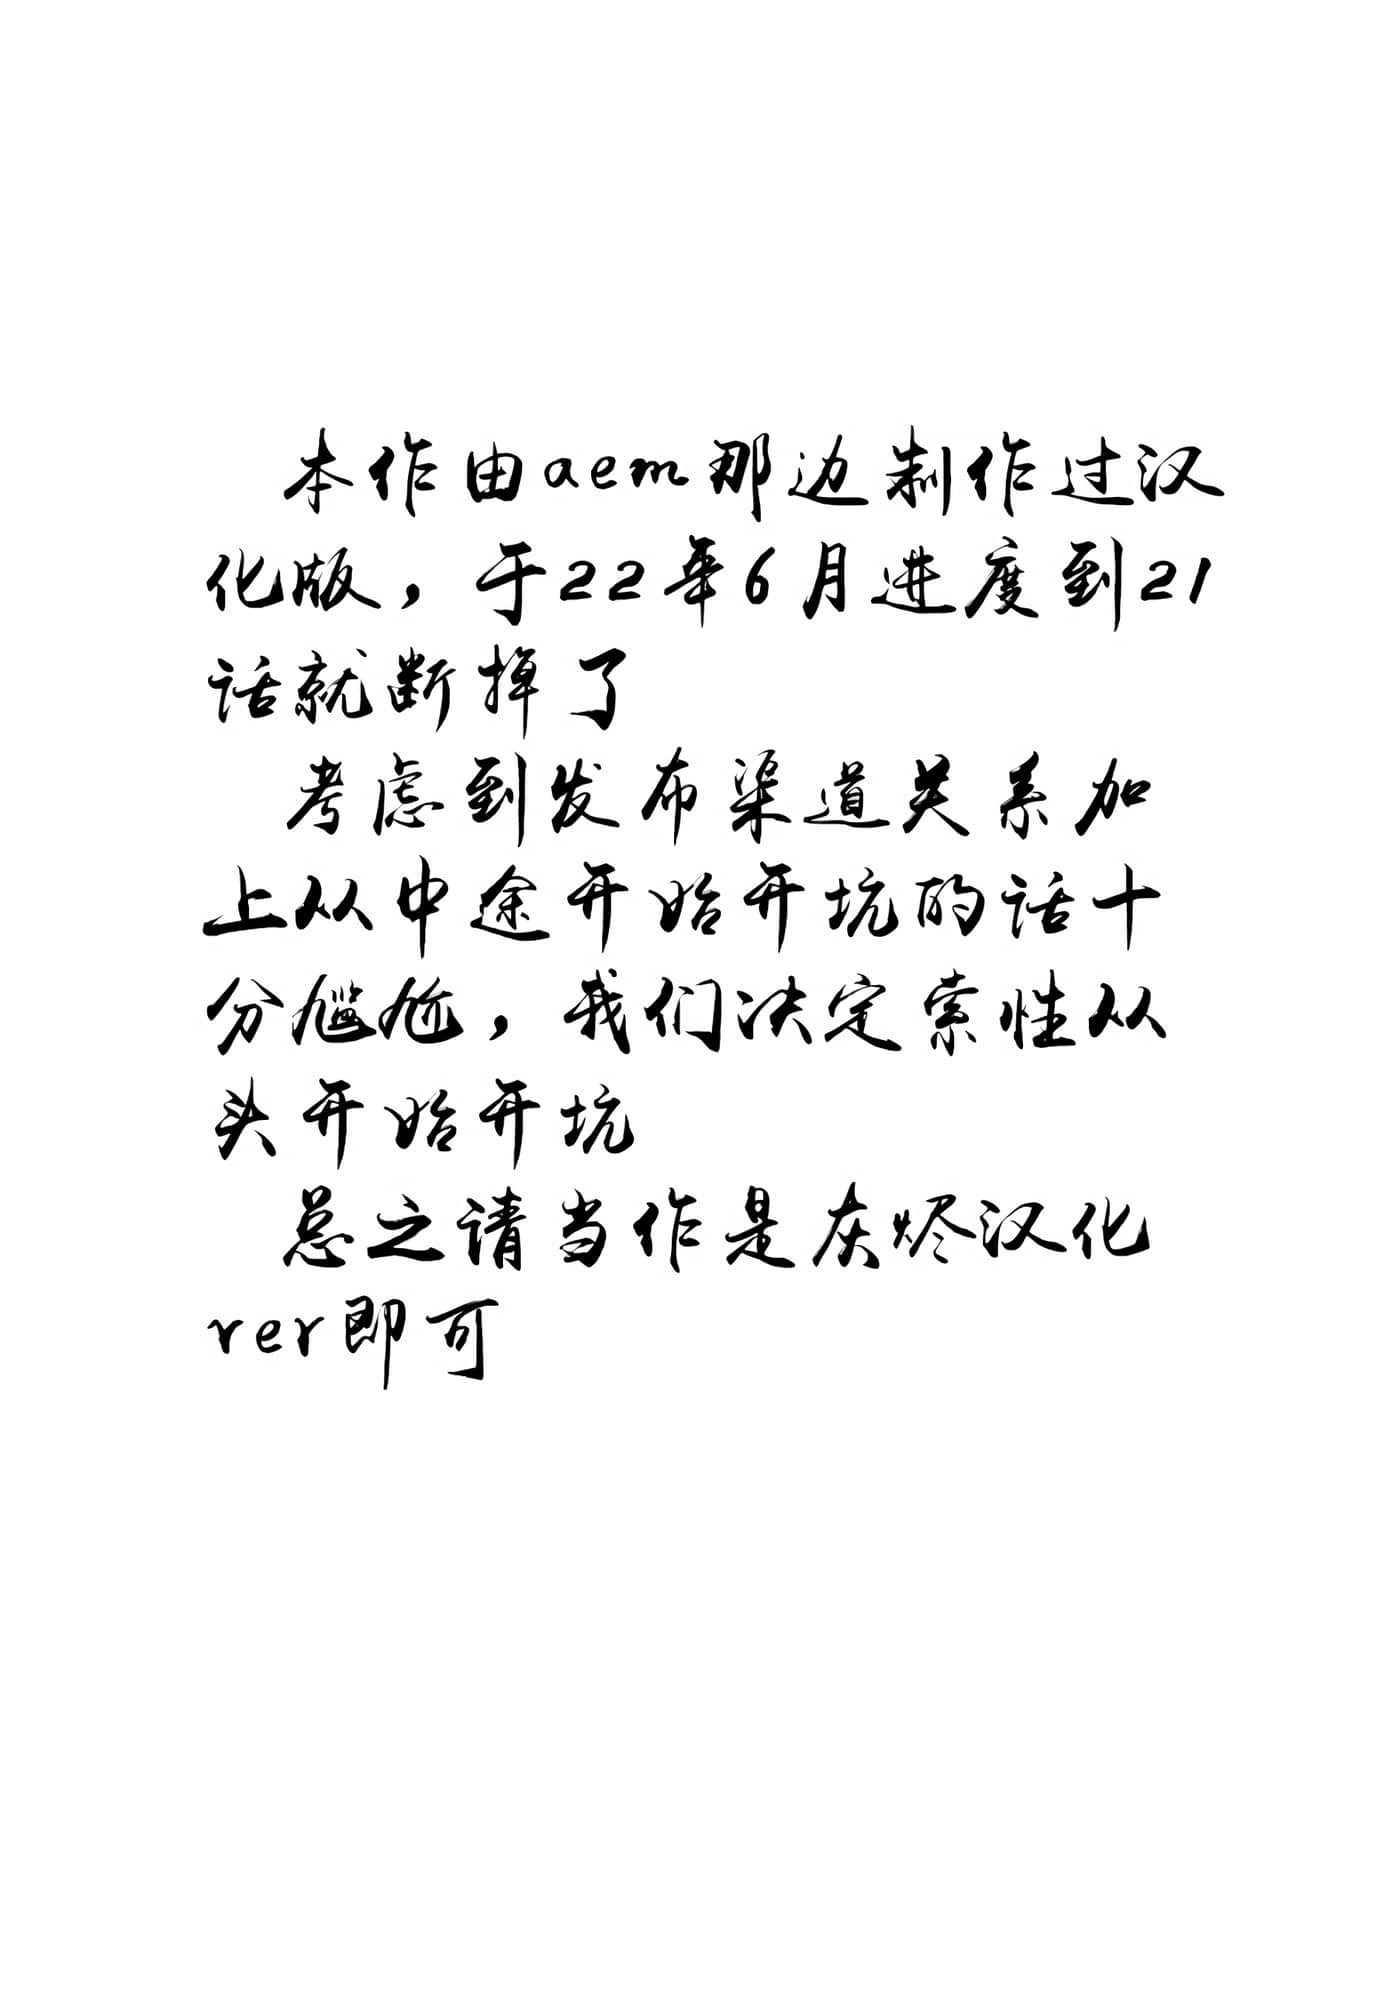 本作由aem那边制作过汉
化版，于22年6月进度到21
话就断掉了
考虑到发布渠道关系加
上从中途开始开坑的话十
分尴尬，我们决定索性从
头开始开坑
总之请当作是灰烬汉化
rer即可